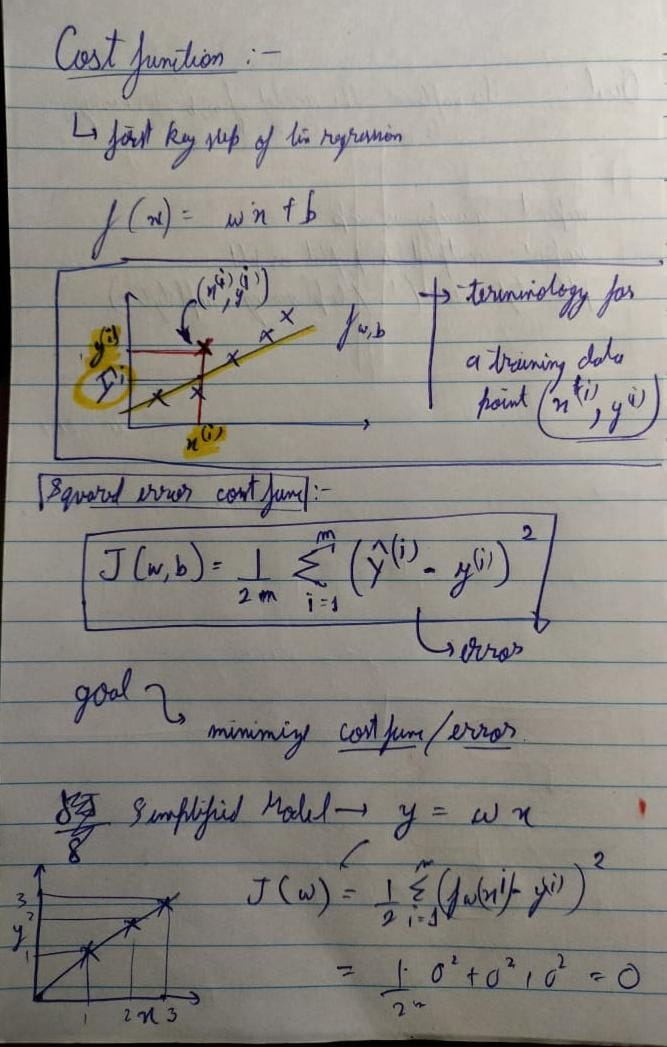 Cost function :-
↳ first key step of lin regression
f(x) = wx + b
(x^(i), y^(i))
y^(i)
ŷ^i
x^(i)
f_w,b
→ terminology for
a training data
point (x^(i), y^(i))
Squared error cost func :-
J(w,b) = 1/2m Σ_{i=1}^{m} (ŷ^(i) - y^(i))^2
↳ error
goal
↳ minimize cost func/error.
Simplified Model → y = wx
3
2
y
1
1 2 x 3
J(w) = 1/2 Σ_{i=1}^{m} (f_w(x^i) - y^i)^2
= 1/2m 0^2 + 0^2 + 0^2 = 0